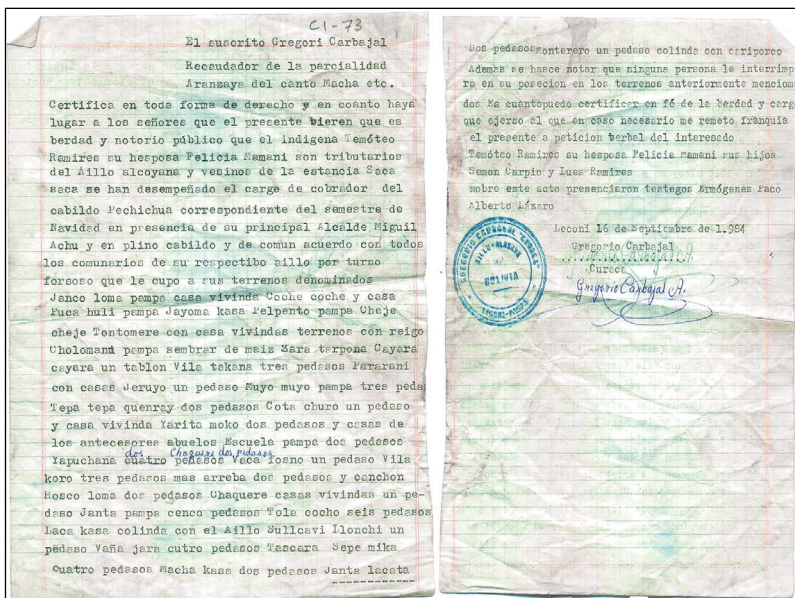 C1-73
El suscrito Gregori Carbajal
Recaudador de la parcialidad
Aranzaya del canto Macha etc.
Certifica en toda forma de derecho y en coanto haya
lugar a los señores que el presente bieren que es
berdad y notorio público que el indigena Temóteo
Ramires su hesposa Felicia Mamani son tributarios
del Aillo alcoyana y vesinos de la estancia Saca
saca se han desempeñado el carge de cobrador del
cabildo Pechichua correspondiente del semestre de
Navidad en presencia de su principal Alcalde Miguil
Achu y en plino cabildo y de comun acuerdo con todos
los comunarios de su respectibo aillo por turno
forsoso que le cupo a sus terrenos denominados
Janco loma pampa casa vivinda Coche coche y casa
Puca huli pampa Jayoma kasa Pelpento pampa Cheje
cheje Tontomere con casa vivindas terrenos con reigo
Cholomani pampa sembrar de maiz Zara tarpona Cayara
cayara un tablon Vila takana tres pedasos Pararani
con casas Jeruyo un pedaso Muyo muyo pampa tres peda
Tepa tepa quenray dos pedasos Cota churo un pedaso
y casa vivinda Yarita moko dos pedasos y casas de
los antecesores abuelos Escuela pampa dos pedasos
dos Chaquere dos pedasos
Yapuchana cuatro pedasos Vaca fosno un pedaso Vila
koro tres pedasos mas arreba dos pedasos y canchon
Hosco loma dos pedasos Chaquere casas vivindas un pe-
daso Janta pampa cenco pedasos Tola cocho seis pedasos
Laca kasa colinda con el Aillo Sullcavi Ilonchi un
pedaso Vaña jara cutro pedasos Tascara Sepe mika
Cuatro pedasos Macha kasa dos pedasos Janta lacata
Dos pedasos monterero un pedaso colinda con cariporco
Además se hasce notar que ninguna persona le interrimpe
ra en su posecion en los terrenos anteriormente menciona
dos Es cuantopuedo certificar en fé de la berdad y cargo
que ejerso al que en caso necesario me remeto franquia
el presente a peticion verbal del interesado
Temóteo Ramires su hesposa Felicia Mamani sus hijos
Semon Carpio y Lues Ramires
sobre este acto presenciaron testegos Ermógenes Paco
Alberto Lázaro
Leconi 16 de Septiembre de 1.984
Gregorio Carbajal
Curaca
Gregorio Carbajal A.
GREGORIO CARBAJAL "CURACA"
BOLIVIA